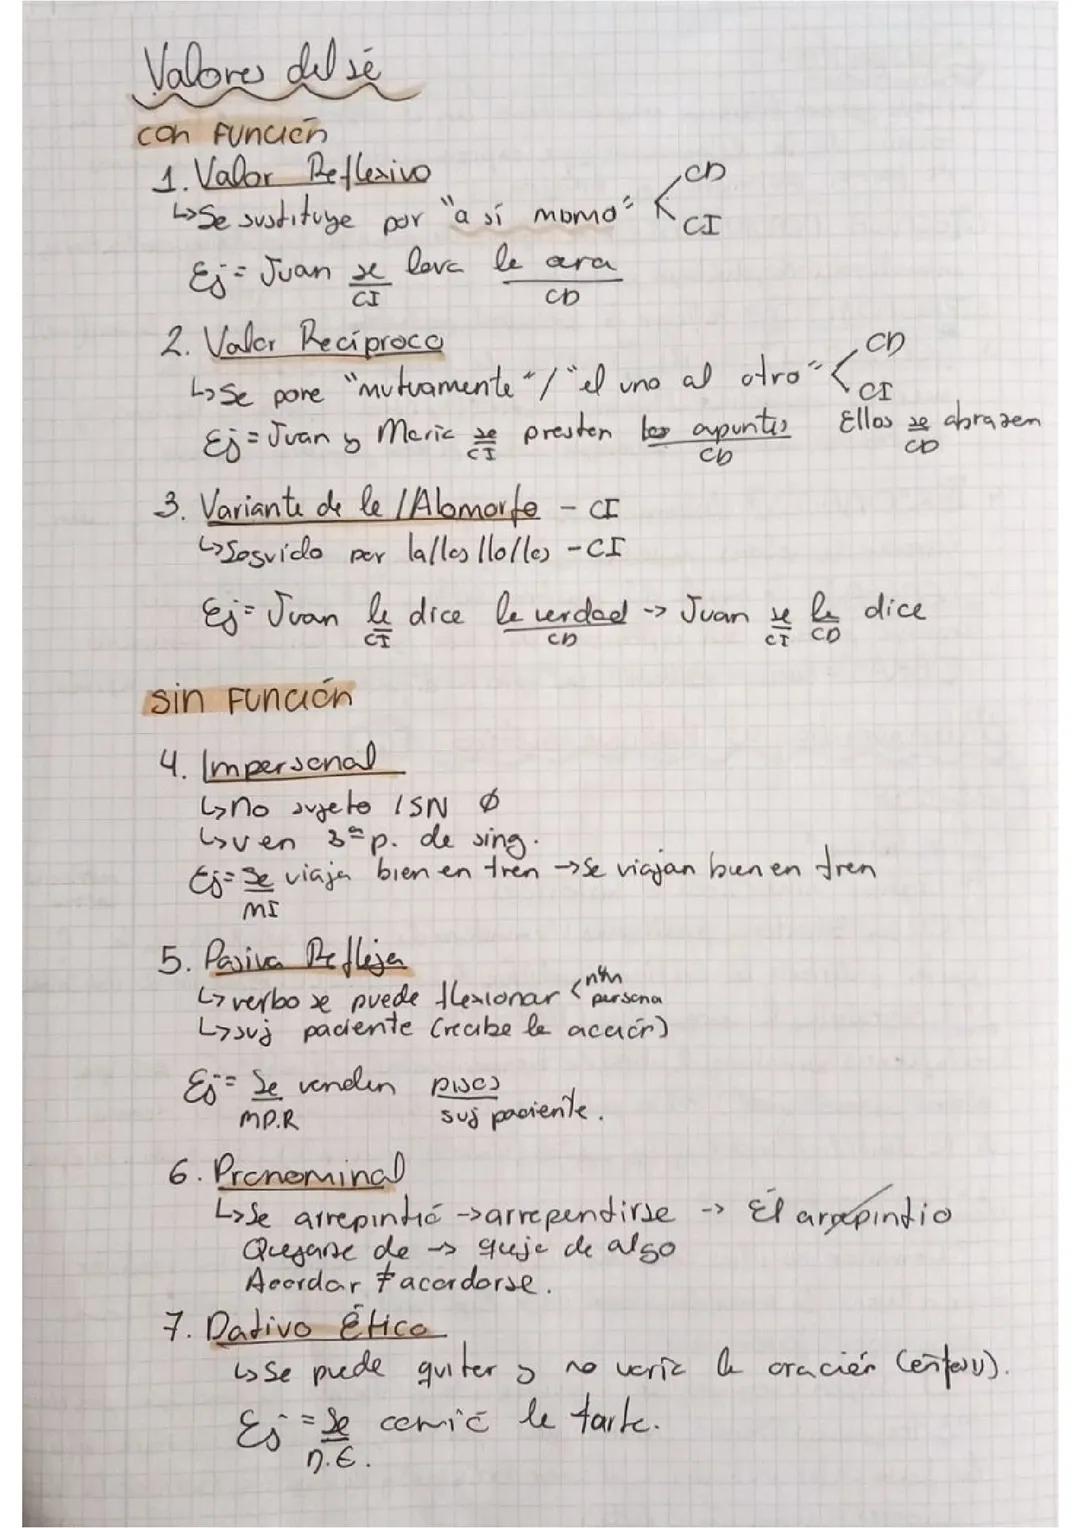 Valores del sé
con Función
1. Valor Reflexivo
↳Se sustituye por "a sí mismo" < CD CI
Ej= Juan se lava la cara
CI CD
2. Valor Recíproco
↳Se pone "mutuamente"/"el uno al otro" < CD CI
Ej= Juan y María se prestan los apuntes Ellos se abrazan
CI CD CD
3. Variante de le /Alomorfo - CI
↳Seguido por la/las/lo/los - CI
Ej= Juan le dice la verdad -> Juan se la dice
CI CD CI CD
sin Función
4. Impersonal
↳no sujeto /SN Ø
↳v en 3ª p. de sing.
Ej= Se viaja bien en tren -> Se viajan bien en tren
MI
5. Pasiva Refleja
↳verbo se puede flexionar < núm persona
↳suj paciente (recibe la acción)
Ej= Se venden pisos
M.P.R suj paciente.
6. Pronominal
↳Se arrepintió -> arrepentirse -> Él arrepintio
Quejarse de -> queja de algo
Acordar ≠ acordarse.
7. Dativo Ético
↳Se puede quitar y no varía la oración
Ej= Se comió la tarta.
D.E.